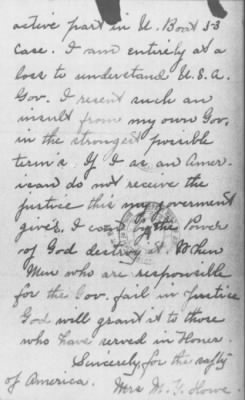 active part in U. Boat 53
case. I am entirely at a
loss to understand U.S.A.
Gov. I resent such an
insult from my own Gov.
in the strongest possible
terms. If I as an Amer-
ican do not receive the
justice this my goverment
gives. I can by the Power
of God destroy it. When
Men who are responsible
for the Gov. fail in Justice
God will grant it to those
who have served in Honor.
Sincerely, for the safty
of America.
Mrs. M. Howe.